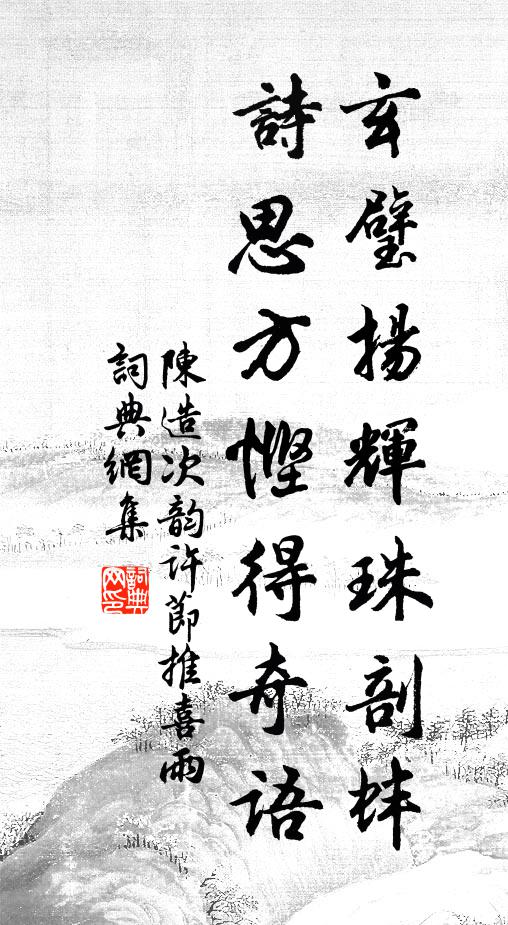 玄璧揚輝珠剖蚌
詩思方慳得奇语
陳造次韵许節推喜雨
詞典網集
詞典
网印